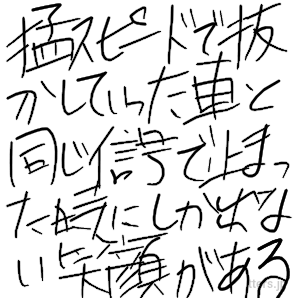 猛スピードで抜
かしていった車と
同じ信号で止まっ
た時にしか出な
い笑顔がある